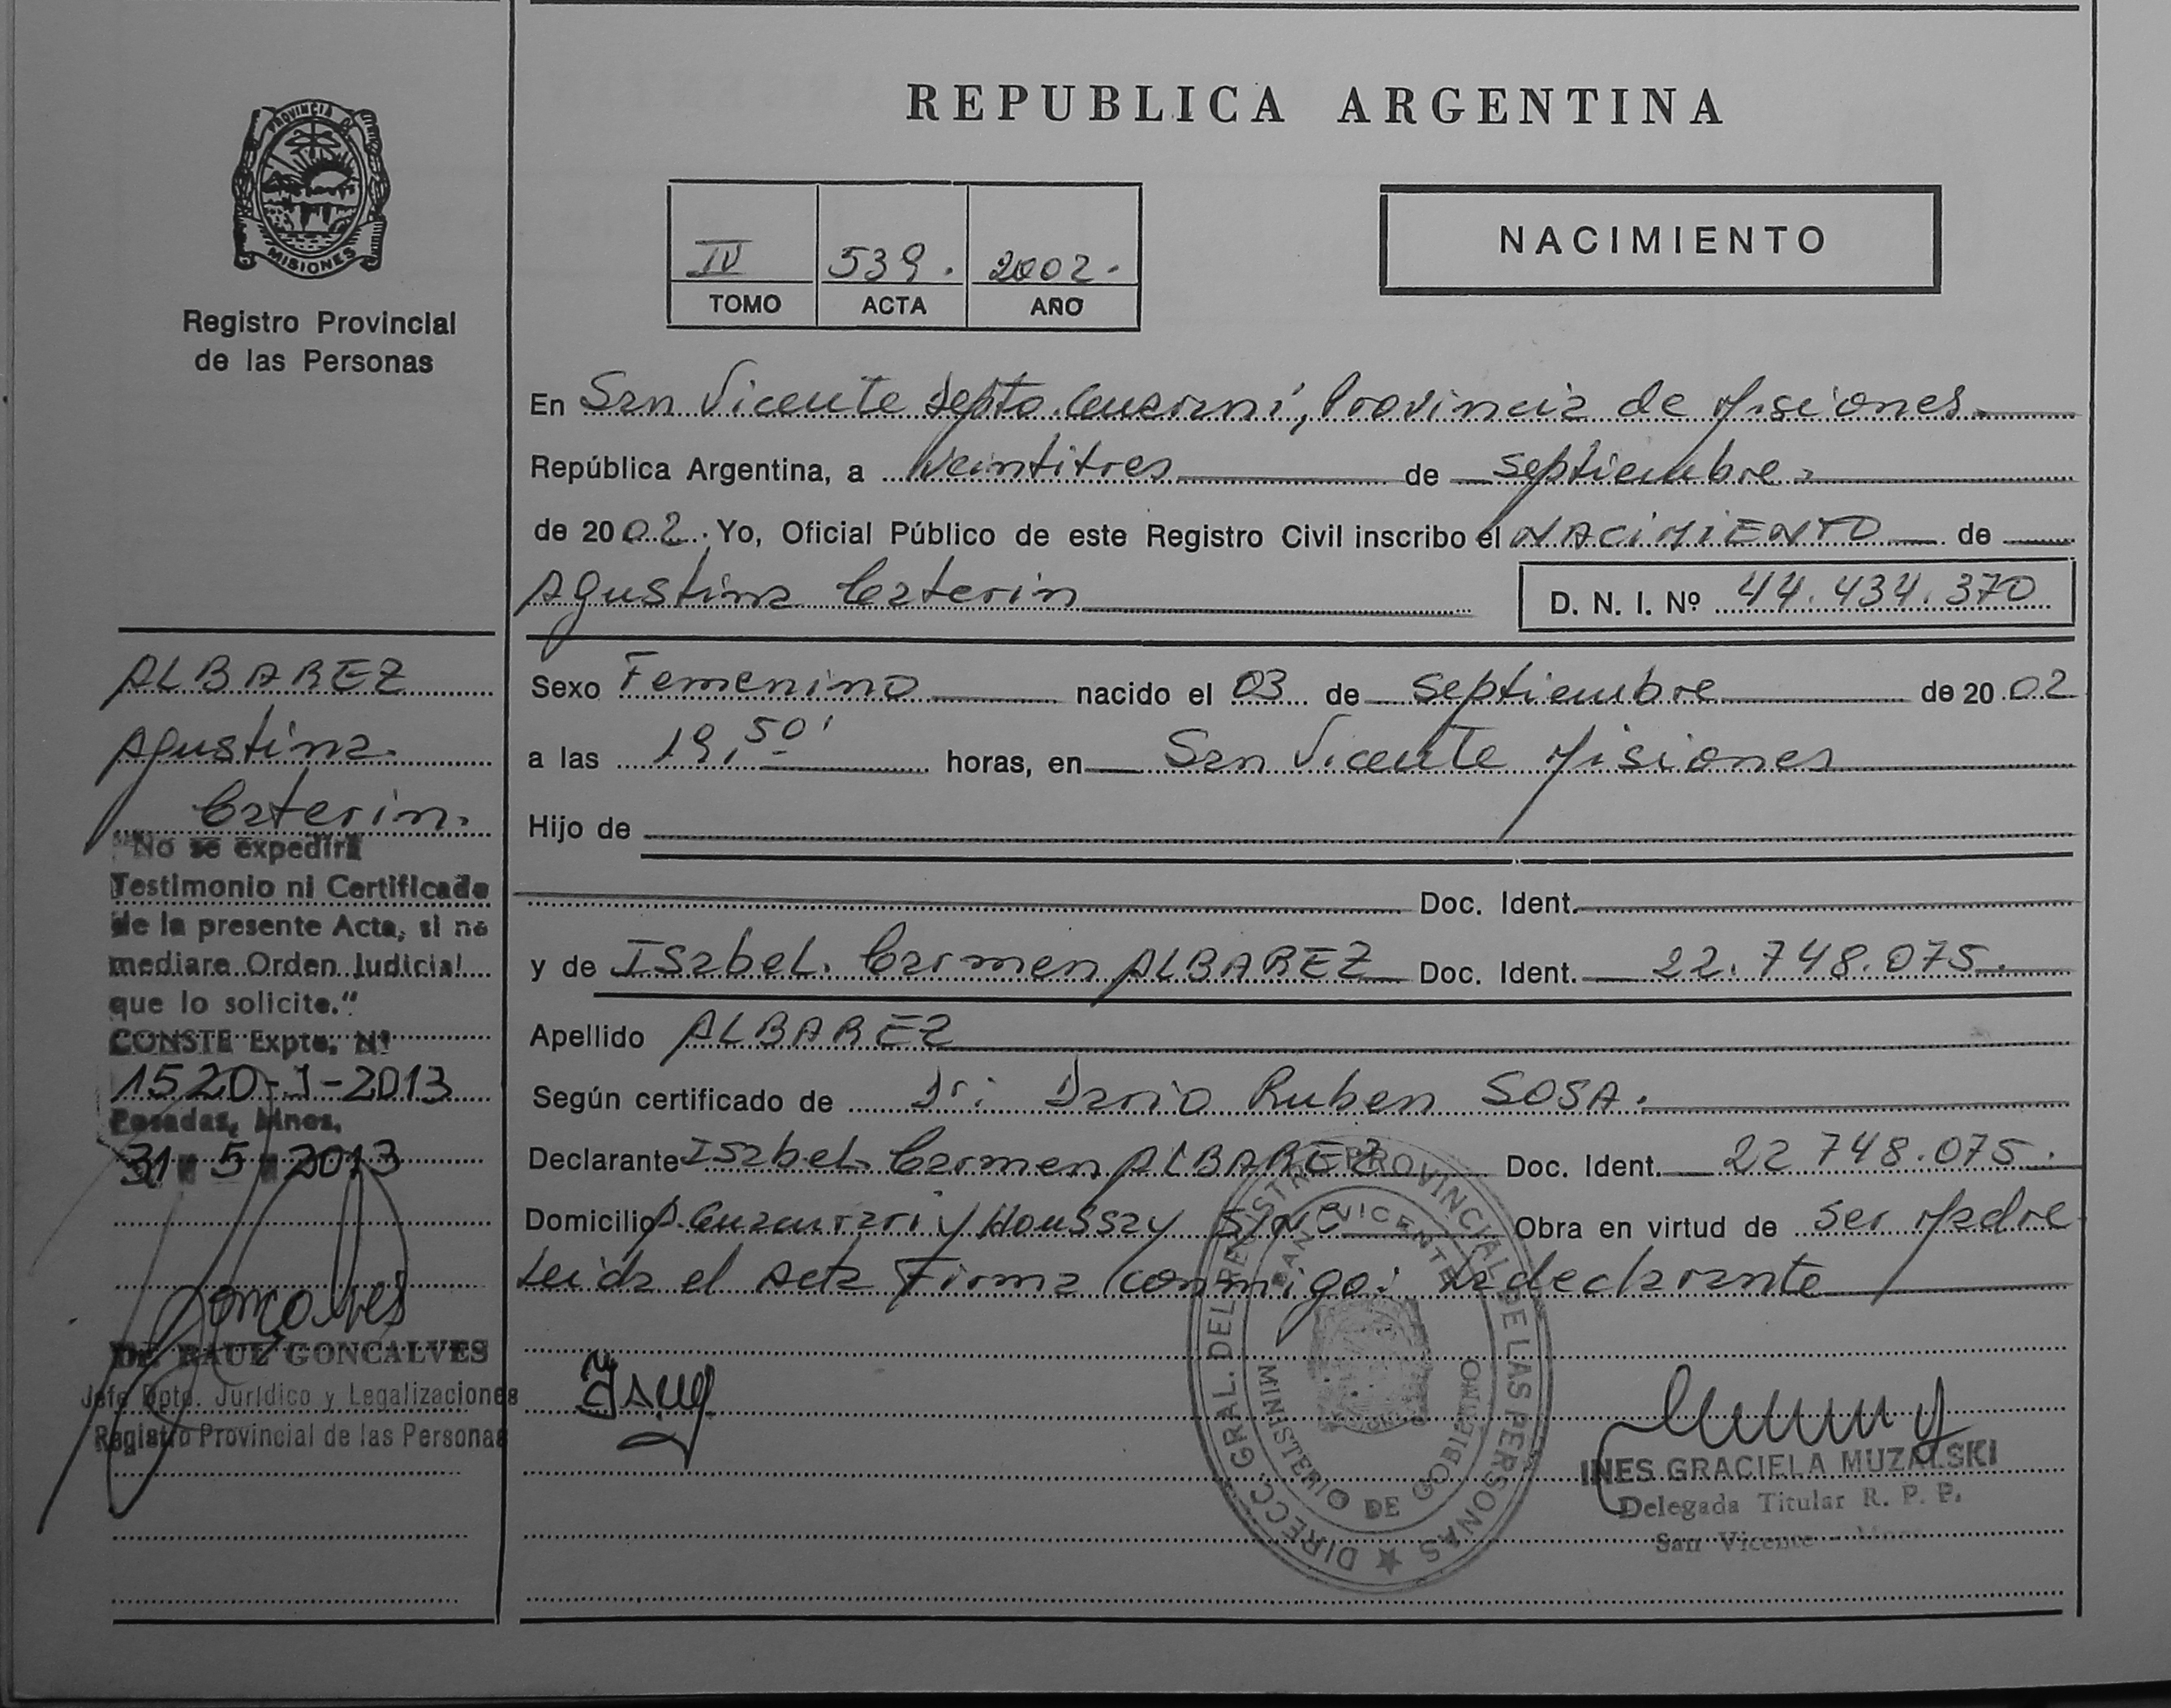 PROVINCIA DE
MISIONES
Registro Provincial
de las Personas
REPUBLICA ARGENTINA
IV 539. 2002.
TOMO ACTA AÑO
NACIMIENTO
En San Vicente Depto. Guaraní, Provincia de Misiones.
República Argentina, a veintitres de septiembre
de 2002. Yo, Oficial Público de este Registro Civil inscribo el NACIMIENTO de
Agustina Caterin D. N. I. Nº 44.434.370
Sexo Femenino nacido el 03 de septiembre de 2002
a las 19,50' horas, en San Vicente Misiones
Hijo de
Doc. Ident.
y de Isabel Carmen ALBAREZ Doc. Ident. 22.748.075.
Apellido ALBAREZ
Según certificado de Dr: Dario Ruben SOSA.
Declarante Isabel Carmen ALBAREZ Doc. Ident. 22 748.075.
Domicilio A. Guacurari y Houssay S/Nº Obra en virtud de ser Madre
Leida el Acta Firma conmigo: la declarante
ALBAREZ
Agustina
Caterin.
"No se expedirá
Testimonio ni Certificado
de la presente Acta, si no
mediare Orden Judicial
que lo solicite."
CONSTE Expte. Nº
1520-J-2013
Posadas, Mnes.
31 5 2013
Goncalves
Dr. RAUL GONCALVES
Jefe Dpto. Jurídico y Legalizaciones
Registro Provincial de las Personas
DIRECC. GRAL. DEL REGISTRO PROVINCIAL DE LAS PERSONAS
SAN VICENTE
MINISTERIO DE GOBIERNO
INES GRACIELA MUZALSKI
Delegada Titular R. P. P.
San Vicente - Mnes.